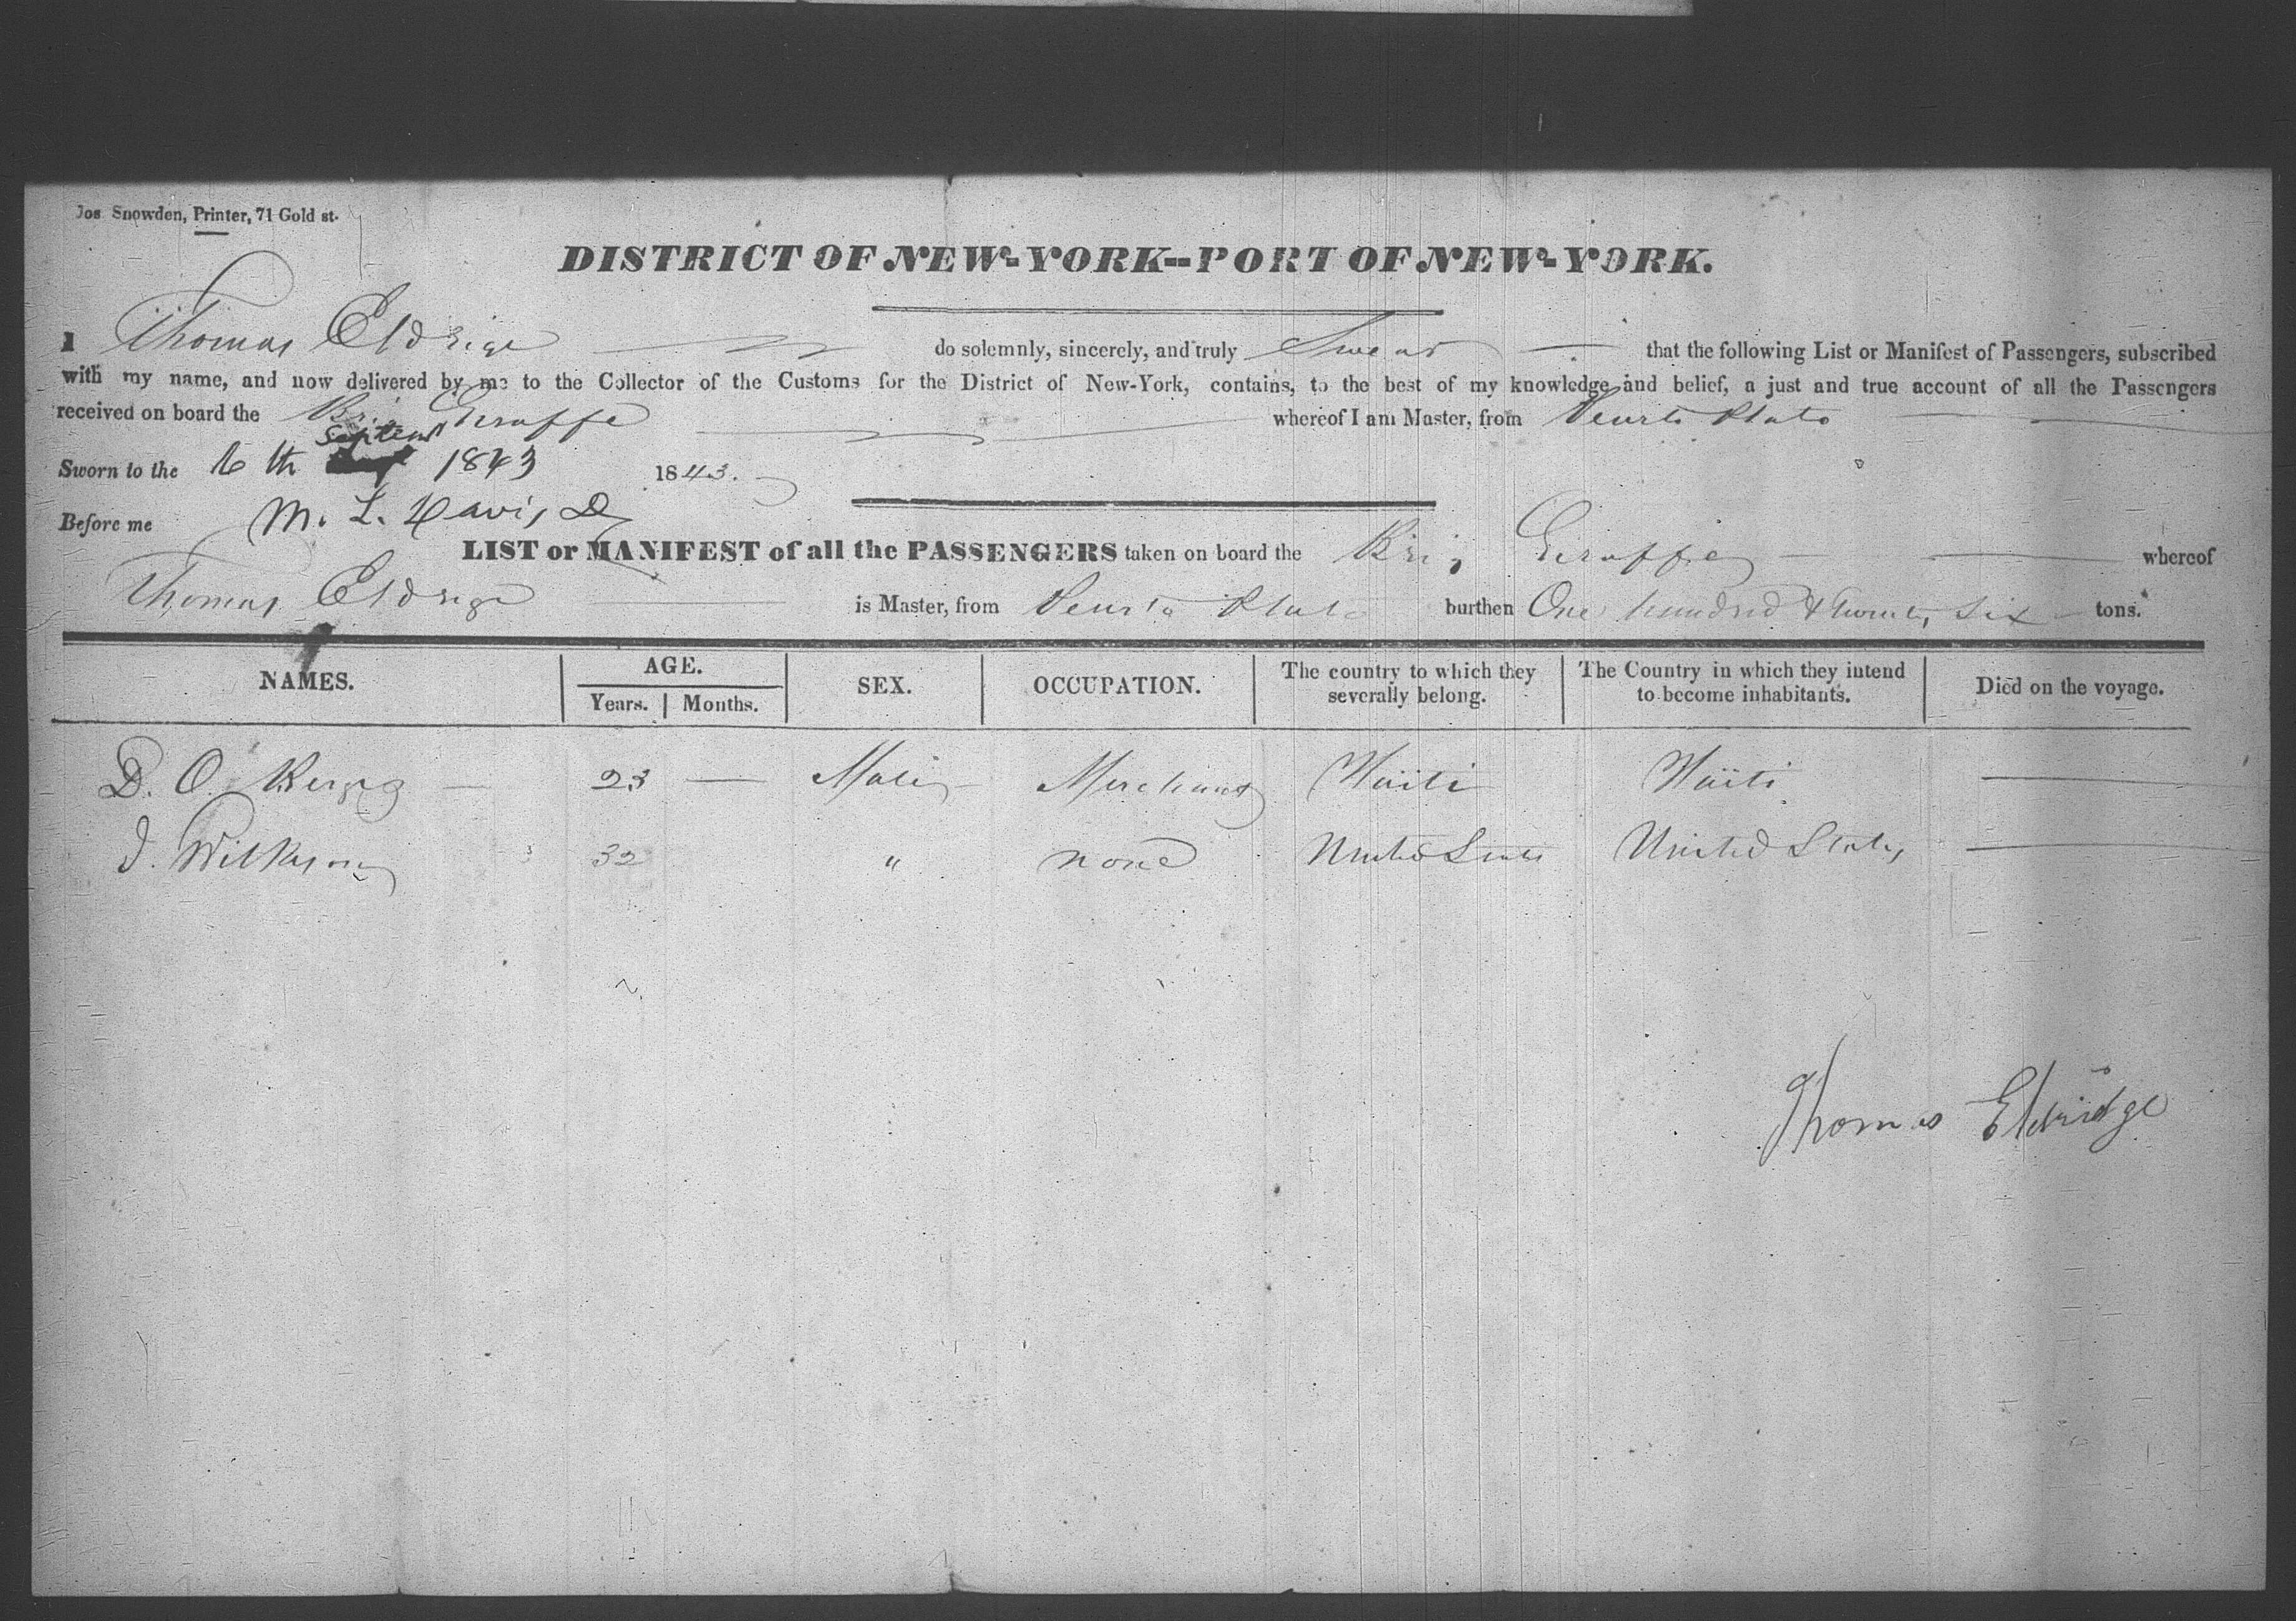 Jos Snowden, Printer, 71 Gold st.
DISTRICT OF NEW-YORK--PORT OF NEW-YORK.
I Thomas Eldrige do solemnly, sincerely, and truly Swear that the following List or Manifest of Passengers, subscribed
with my name, and now delivered by me to the Collector of the Customs for the District of New-York, contains, to the best of my knowledge and belief, a just and true account of all the Passengers
received on board the Brig Giraffe whereof I am Master, from Peurto Plato
Septem
Sworn to the 6th 1843 1843.
Before me M. L. Davis D
LIST or MANIFEST of all the PASSENGERS taken on board the Brig Giraffe whereof
Thomas Eldrige is Master, from Peurto Plato burthen One hundred & twenty Six tons.
NAMES. AGE. SEX. OCCUPATION. The country to which they severally belong. The Country in which they intend to become inhabitants. Died on the voyage.
Years. Months.
D. O. 23 — Male Merchant Haiiti Haiiti —
J. Wilkerson 32 " none United States United States —
Thomas Eldridge